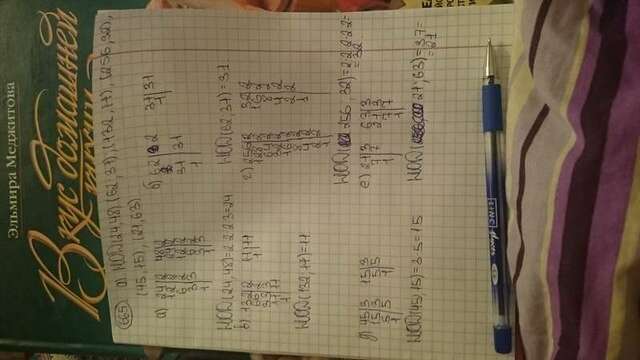 Эльмира Меджитова
Вкус домашней
кухни
665 а) НОД(24,48), (62,31), (132,11), (256,32),
(45,15), (21,63)
а) 24|2 48|2
12|2 24|2
6|2 12|2
3|3 6|2
1 3|3
1
НОД(24,48)=2·2·2·3=24
б) 62|2 31|31
31|31 1
1
НОД(62,31)=31
в) 132|2 11|11
66|2 1
33|3
11|11
1
НОД(132,11)=11
г) 256|2 32|2
128|2 16|2
64|2 8|2
32|2 4|2
16|2 2|2
8|2 1
4|2
2|2
1
НОД(256,32)=2·2·2·2·2=
=32
д) 45|3 15|3
15|3 5|5
5|5 1
1
НОД(45,15)=3·5=15
е) 21|3 63|3
7|7 21|3
1 7|7
1
НОД(21,63)=3·7=
=21
LINC